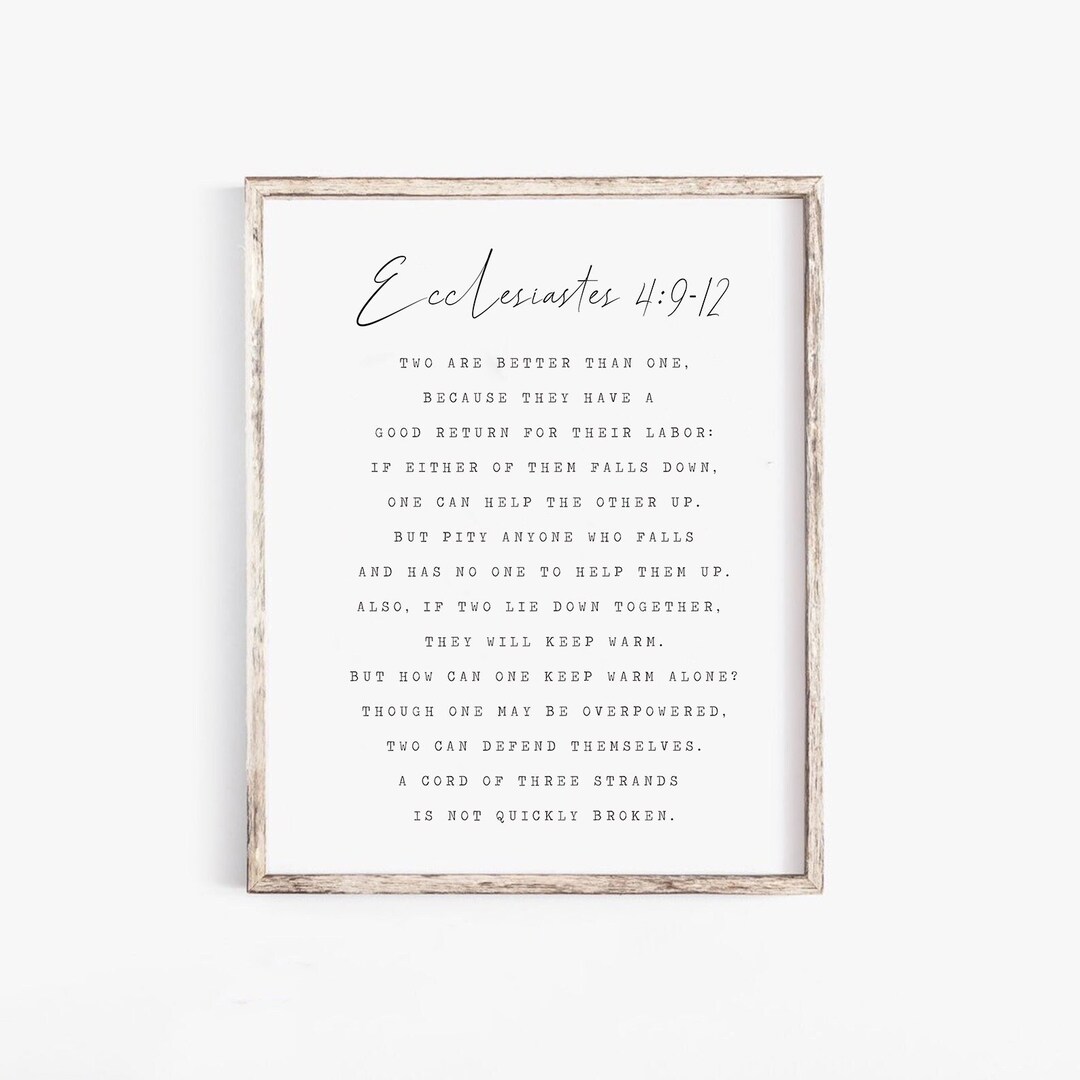 Ecclesiastes 4:9-12
TWO ARE BETTER THAN ONE,
BECAUSE THEY HAVE A
GOOD RETURN FOR THEIR LABOR:
IF EITHER OF THEM FALLS DOWN,
ONE CAN HELP THE OTHER UP.
BUT PITY ANYONE WHO FALLS
AND HAS NO ONE TO HELP THEM UP.
ALSO, IF TWO LIE DOWN TOGETHER,
THEY WILL KEEP WARM.
BUT HOW CAN ONE KEEP WARM ALONE?
THOUGH ONE MAY BE OVERPOWERED,
TWO CAN DEFEND THEMSELVES.
A CORD OF THREE STRANDS
IS NOT QUICKLY BROKEN.